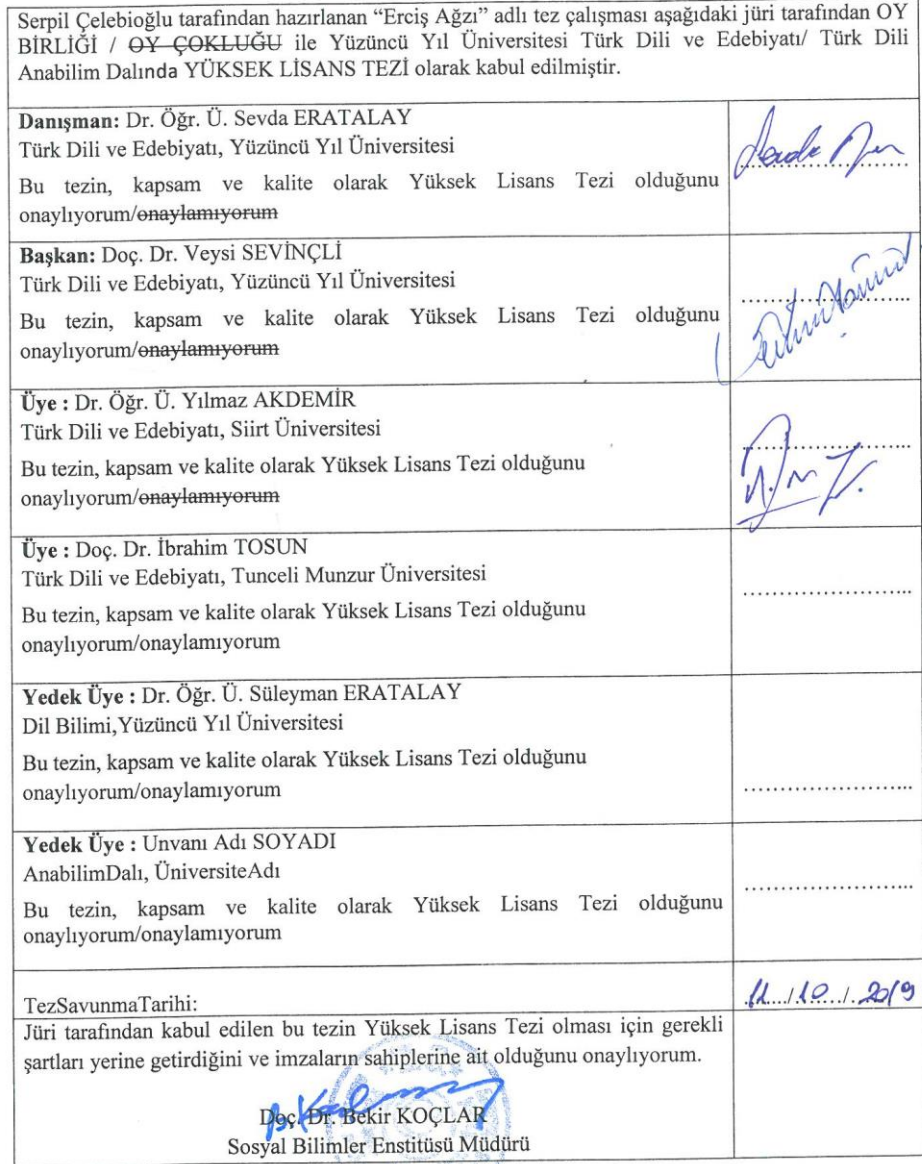 Serpil Çelebioğlu tarafından hazırlanan “Erciş Ağzı” adlı tez çalışması aşağıdaki jüri tarafından OY
BİRLİĞİ / OY ÇOKLUĞU ile Yüzüncü Yıl Üniversitesi Türk Dili ve Edebiyatı/ Türk Dili
Anabilim Dalında YÜKSEK LİSANS TEZİ olarak kabul edilmiştir.
Danışman: Dr. Öğr. Ü. Sevda ERATALAY
Türk Dili ve Edebiyatı, Yüzüncü Yıl Üniversitesi
Bu tezin, kapsam ve kalite olarak Yüksek Lisans Tezi olduğunu
onaylıyorum/onaylamıyorum
Başkan: Doç. Dr. Veysi SEVİNÇLİ
Türk Dili ve Edebiyatı, Yüzüncü Yıl Üniversitesi
Bu tezin, kapsam ve kalite olarak Yüksek Lisans Tezi olduğunu
onaylıyorum/onaylamıyorum
Üye : Dr. Öğr. Ü. Yılmaz AKDEMİR
Türk Dili ve Edebiyatı, Siirt Üniversitesi
Bu tezin, kapsam ve kalite olarak Yüksek Lisans Tezi olduğunu
onaylıyorum/onaylamıyorum
Üye : Doç. Dr. İbrahim TOSUN
Türk Dili ve Edebiyatı, Tunceli Munzur Üniversitesi
Bu tezin, kapsam ve kalite olarak Yüksek Lisans Tezi olduğunu
onaylıyorum/onaylamıyorum
Yedek Üye : Dr. Öğr. Ü. Süleyman ERATALAY
Dil Bilimi,Yüzüncü Yıl Üniversitesi
Bu tezin, kapsam ve kalite olarak Yüksek Lisans Tezi olduğunu
onaylıyorum/onaylamıyorum
Yedek Üye : Unvanı Adı SOYADI
AnabilimDalı, ÜniversiteAdı
Bu tezin, kapsam ve kalite olarak Yüksek Lisans Tezi olduğunu
onaylıyorum/onaylamıyorum
TezSavunmaTarihi: 11/10/2019
Jüri tarafından kabul edilen bu tezin Yüksek Lisans Tezi olması için gerekli
şartları yerine getirdiğini ve imzaların sahiplerine ait olduğunu onaylıyorum.
Doç. Dr. Bekir KOÇLAR
Sosyal Bilimler Enstitüsü Müdürü